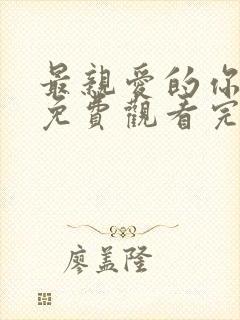 最親愛的你
免費觀看完
廖盖隆